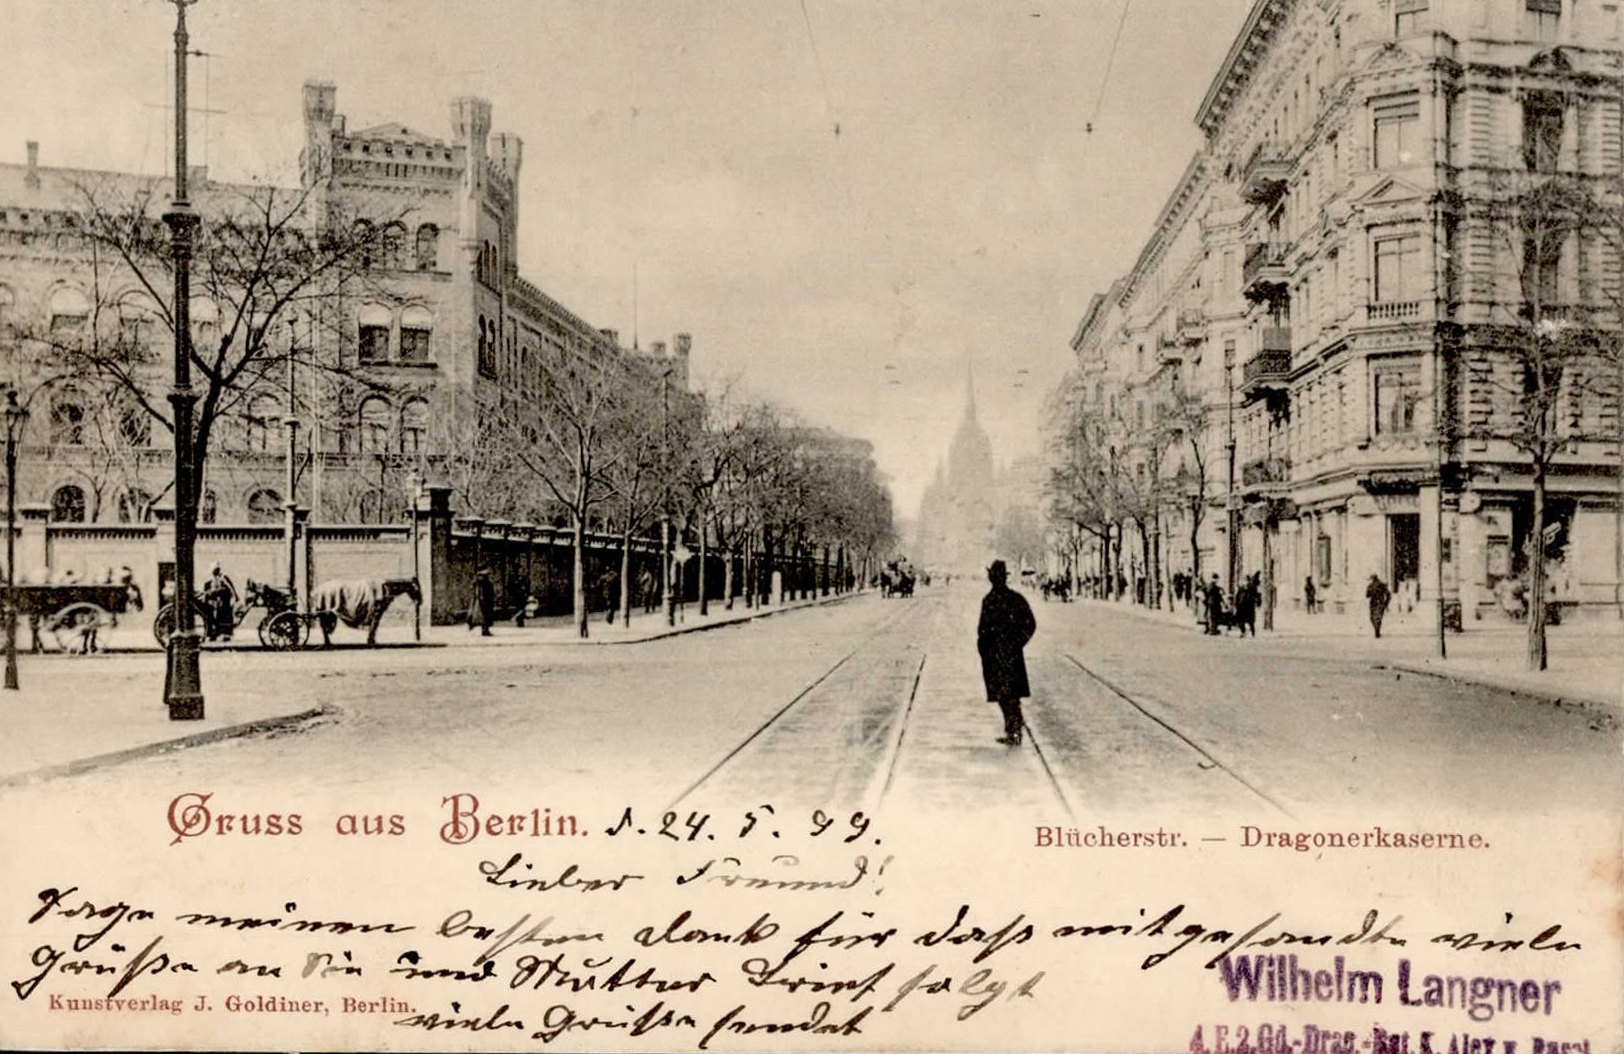 Gruss aus Berlin. d. 24. 5. 99.
Blücherstr. — Dragonerkaserne.
Lieber Freund!
Sage meinen besten Dank für daß mitgesandte viele
Grüße an Sie und Mutter Brief folgt
Kunstverlag J. Goldiner, Berlin.
viele Grüße sendet
Wilhelm Langner
4. E. 2. Gd.-Drag.-Rgt. K. Alex v. Russl.